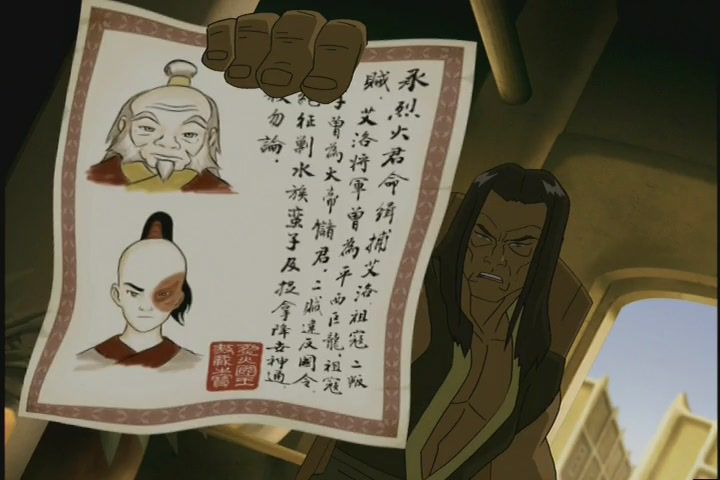 承烈火君命緝捕艾洛.祖寇二叛
賊.艾洛將軍曾為平西巨龍.祖寇
子曾為火帝儲君.二賊違反國令.
征剿水族蠻子及捉拿降世神通.
勿論.